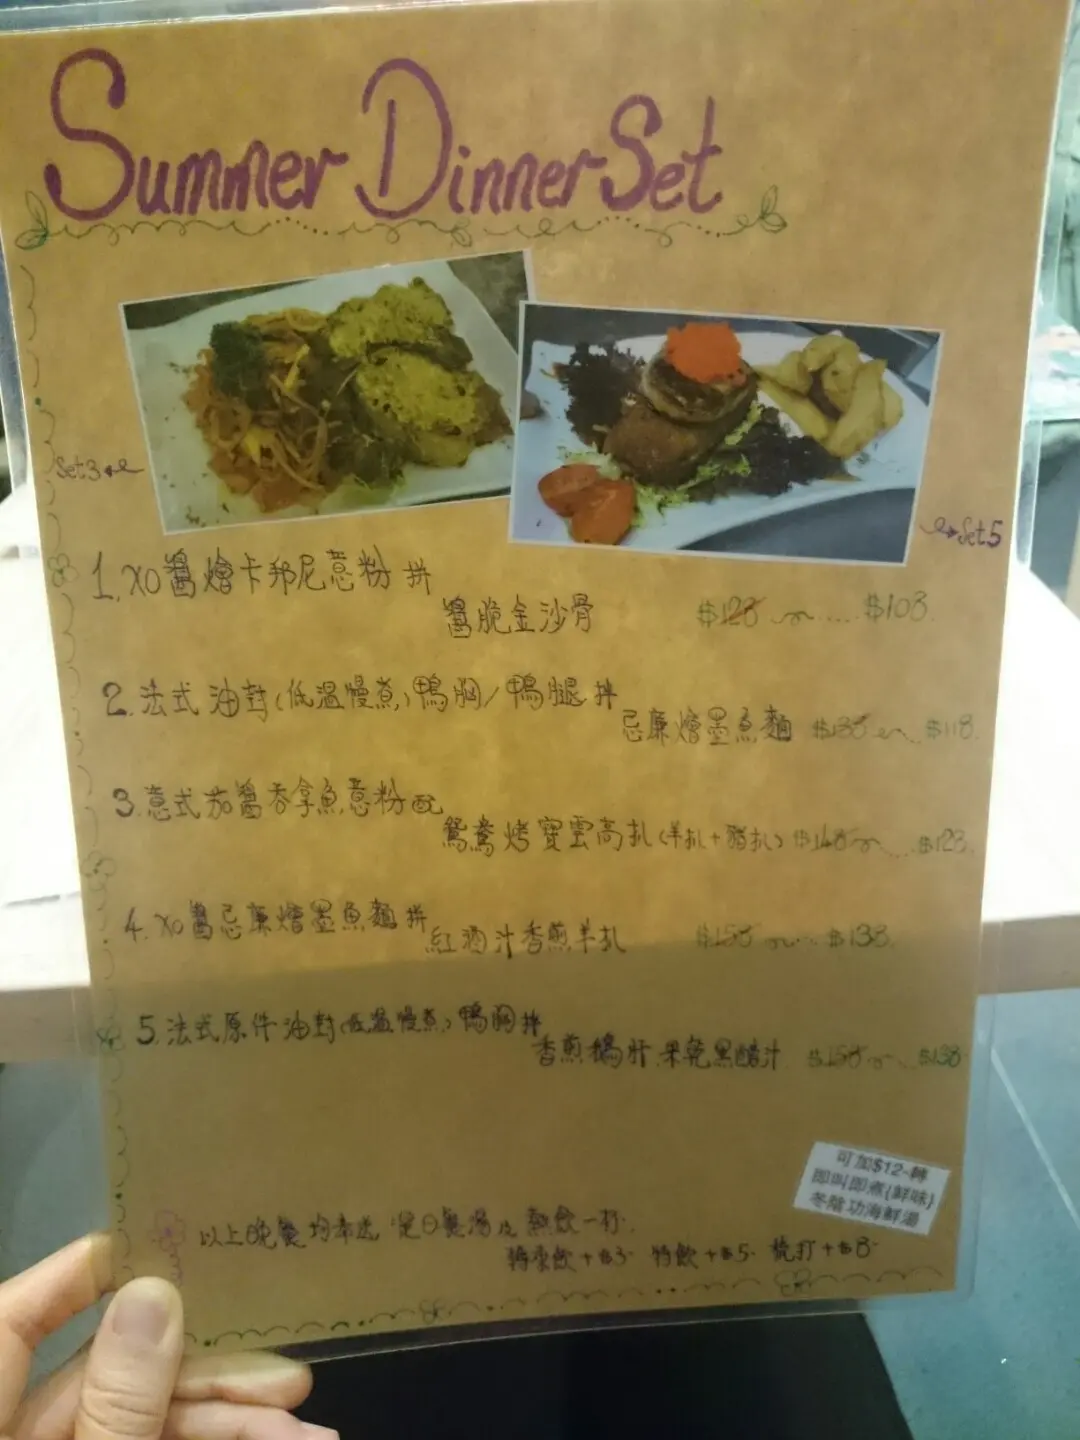 Summer Dinner Set
Set 3
Set 5
1. XO醬燴卡邦尼意粉拼
醬脆金沙骨 $128 ..... $108.
2. 法式油封(低溫慢煮)鴨胸/鴨腿拼
忌廉燴墨魚麵 $138 .. $118.
3. 意式茄醬吞拿魚意粉配
鴛鴦烤寶雲高扒(羊扒+豬扒) $148 ... $128.
4. XO醬忌廉燴墨魚麵拼
紅酒汁香煎羊扒 $158 ... $138.
5. 法式原件油封(低溫慢煮)鴨胸拼
香煎鵝肝 黑醋汁 $158 .. $138.
可加$12-轉
即叫即煮(鮮味)
冬陰功海鮮湯
以上晚餐均奉送 是日餐湯及熱飲一杯.
轉凍飲+$3- 特飲+$5- 梳打+$8-